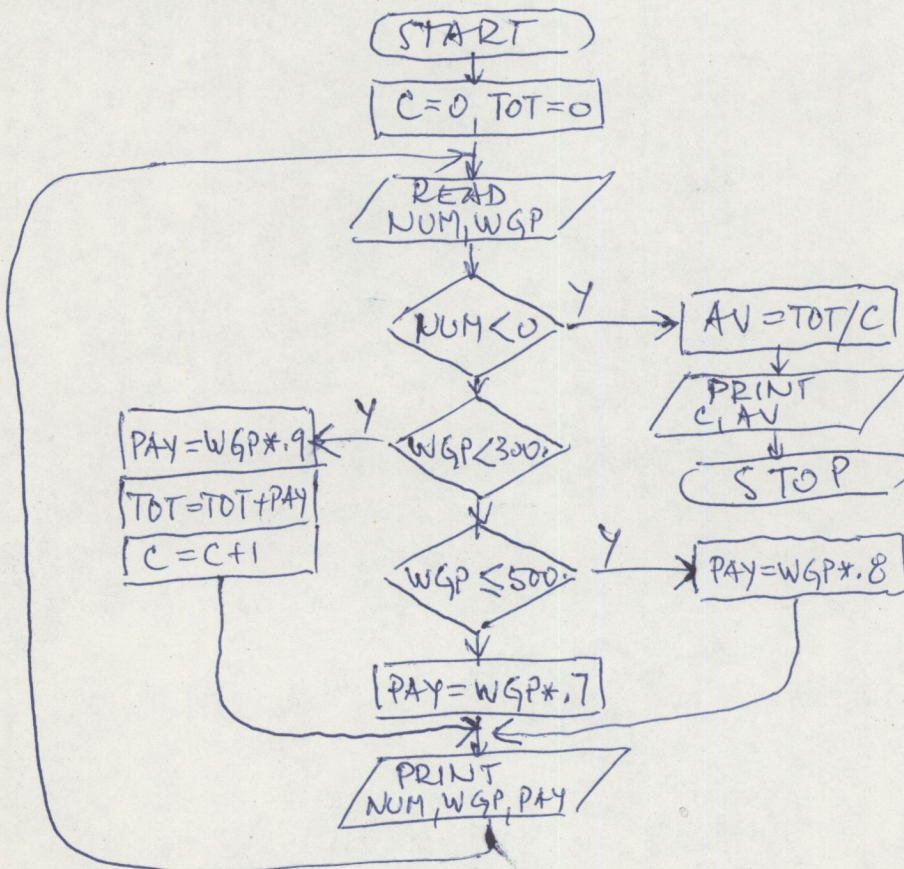 START
C=0 TOT=0
READ
NUM, WGP
NUM<0
Y
AV=TOT/C
PRINT
C, AV
STOP
WGP<300.
Y
PAY=WGP*.9
TOT=TOT+PAY
C=C+1
WGP≤500.
Y
PAY=WGP*.8
PAY=WGP*.7
PRINT
NUM, WGP, PAY